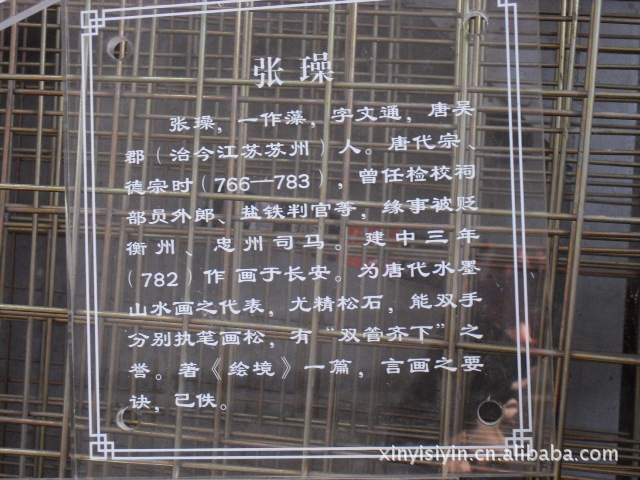 张璪
张璪，一作藻，字文通，唐吴
郡（治今江苏苏州）人。唐代宗、
德宗时（766—783），曾任检校祠
部员外郎、盐铁判官等，缘事被贬
衡州、忠州司马。建中三年
（782）作画于长安。为唐代水墨
山水画之代表，尤精松石，能双手
分别执笔画松，有“双管齐下”之
誉。著《绘境》一篇，言画之要
诀，已佚。
xinyisiyin.cn.alibaba.com